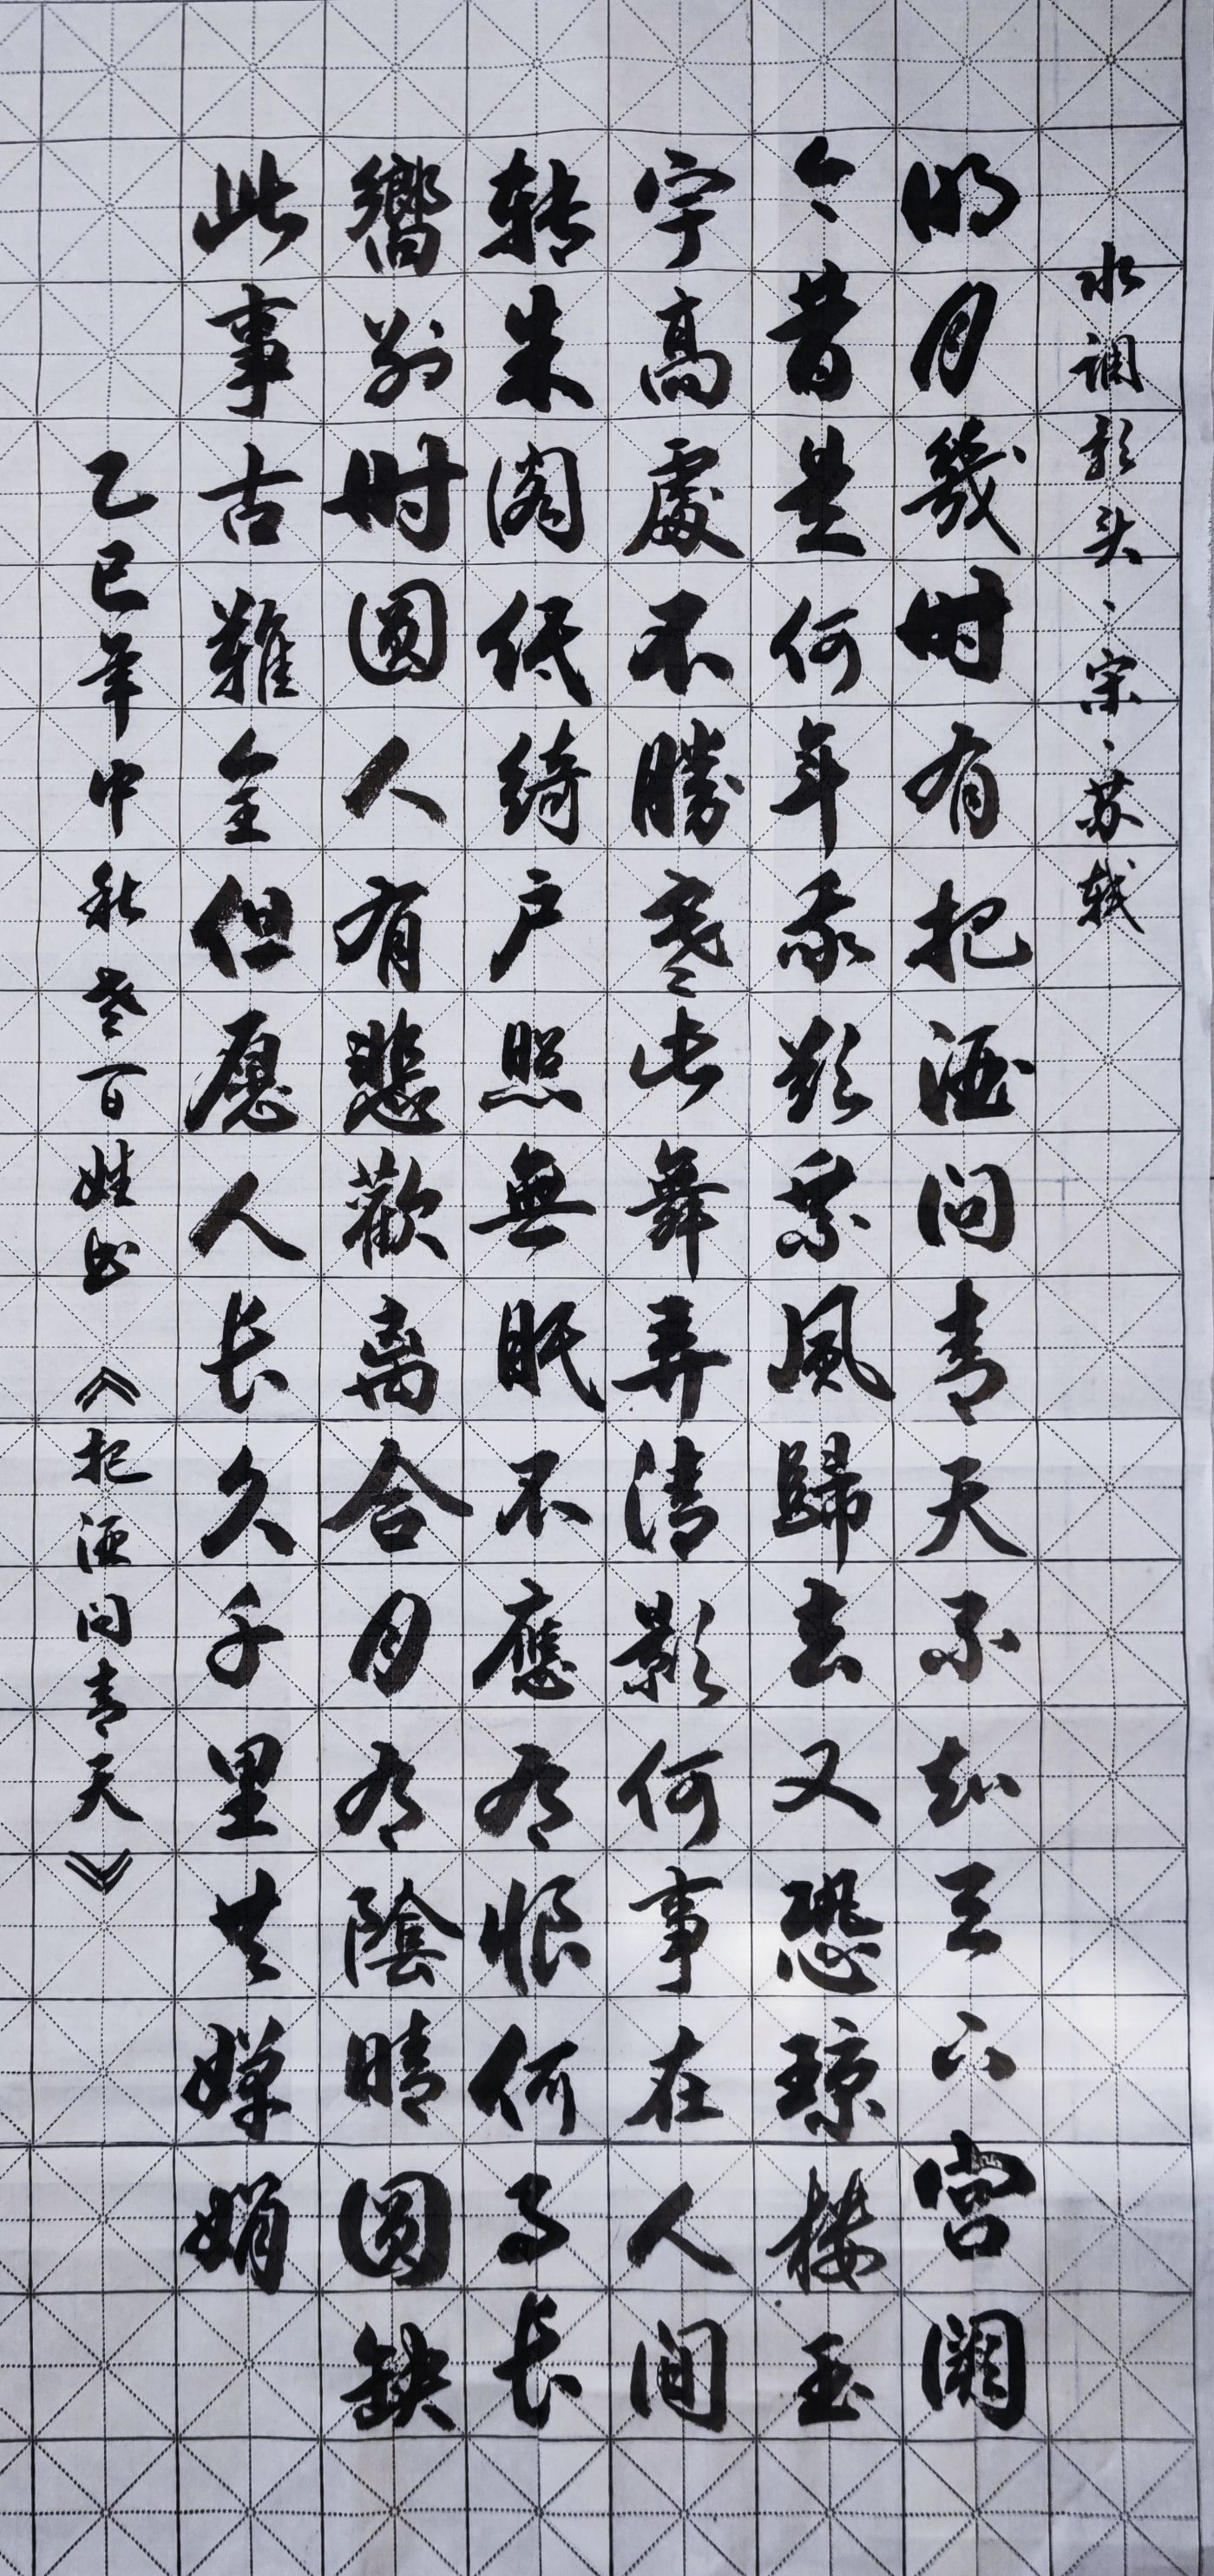 水调歌头、宋、苏轼
明月幾时有把酒问青天不知天上宫阙
今昔是何年我欲乘風歸去又恐琼楼玉
宇高處不勝寒起舞弄清影何事在人间
转朱阁低绮户照無眠不應有恨何事长
嚮别时圆人有悲歡离合月有陰晴圆缺
此事古難全但愿人长久千里共婵娟
乙巳年中秋老百姓书《把酒问青天》